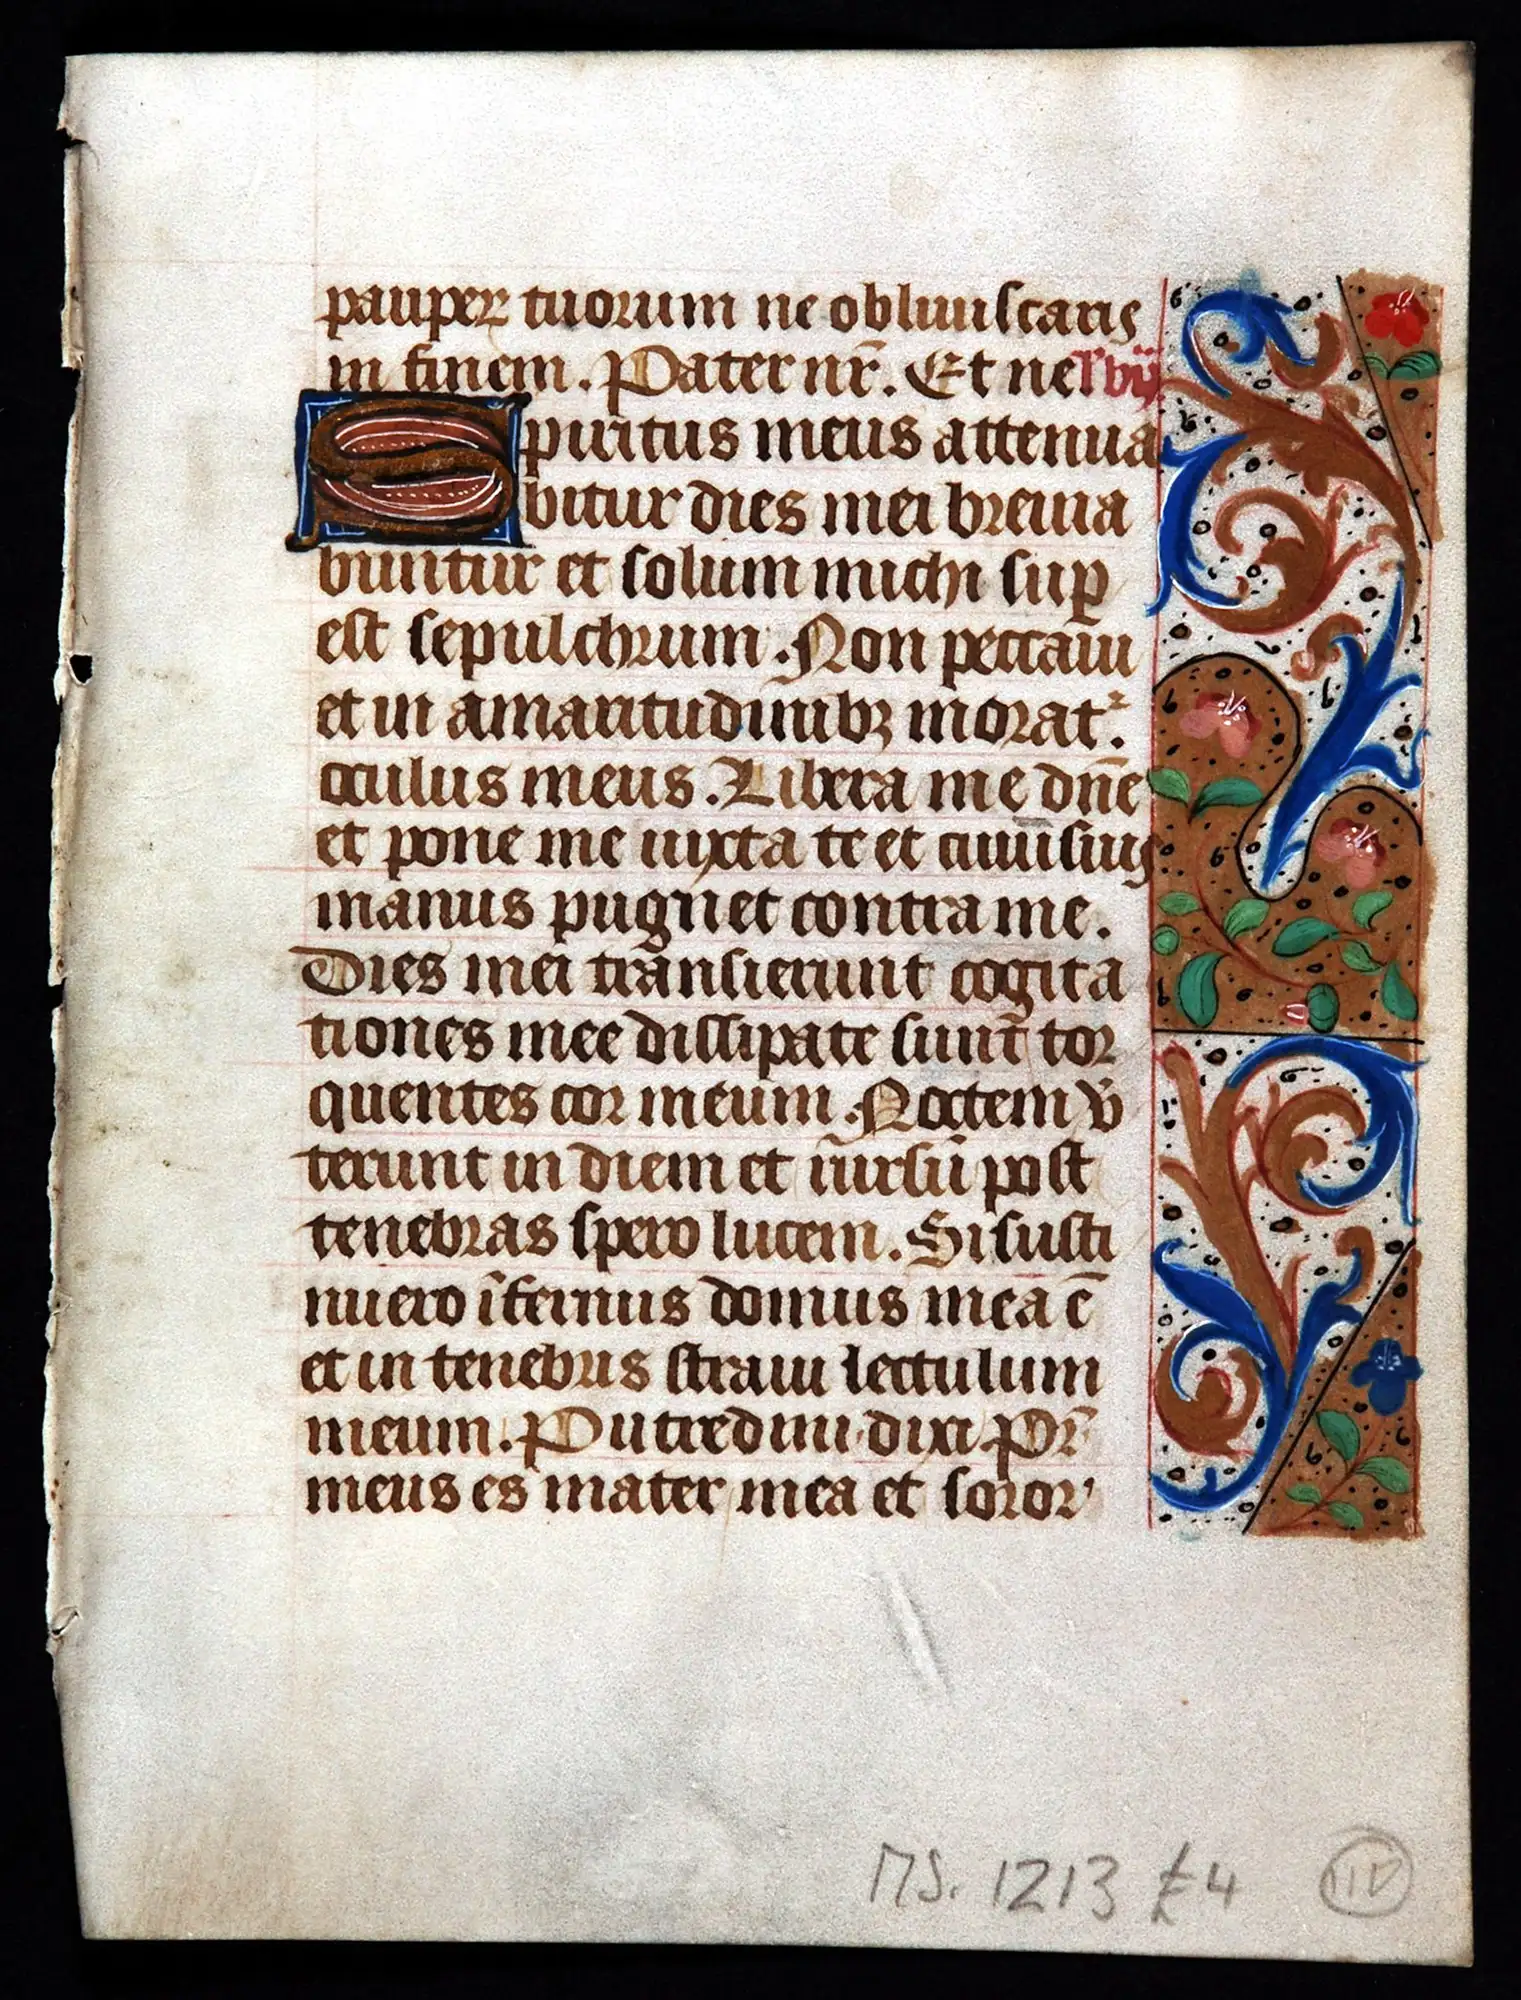 pauper̄ tuorum ne obliuiscaris
in finem. Pater nr̄. Et ne l' vij
Spiritus meus attenua
bitur dies mei breuia
buntur et solum michi suꝑ
est sepulchrum. Non peccaui
et in amaritudinibꝫ morat᷑.
oculus meus. Libera me dn̄e
et pone me iuxta te et cuiusuis
manus pugnet contra me.
Dies mei transierunt cogita
tiones mee dissipate sunt tor
quentes cor meum. Noctem v̄
terunt in diem et rursū post
tenebras spero lucem. Si susti
nuero īfernus domus mea ē
et in tenebris straui lectulum
meum. Putredini dixi Pr̄
meus es mater mea et soror
MS. 1213 £4